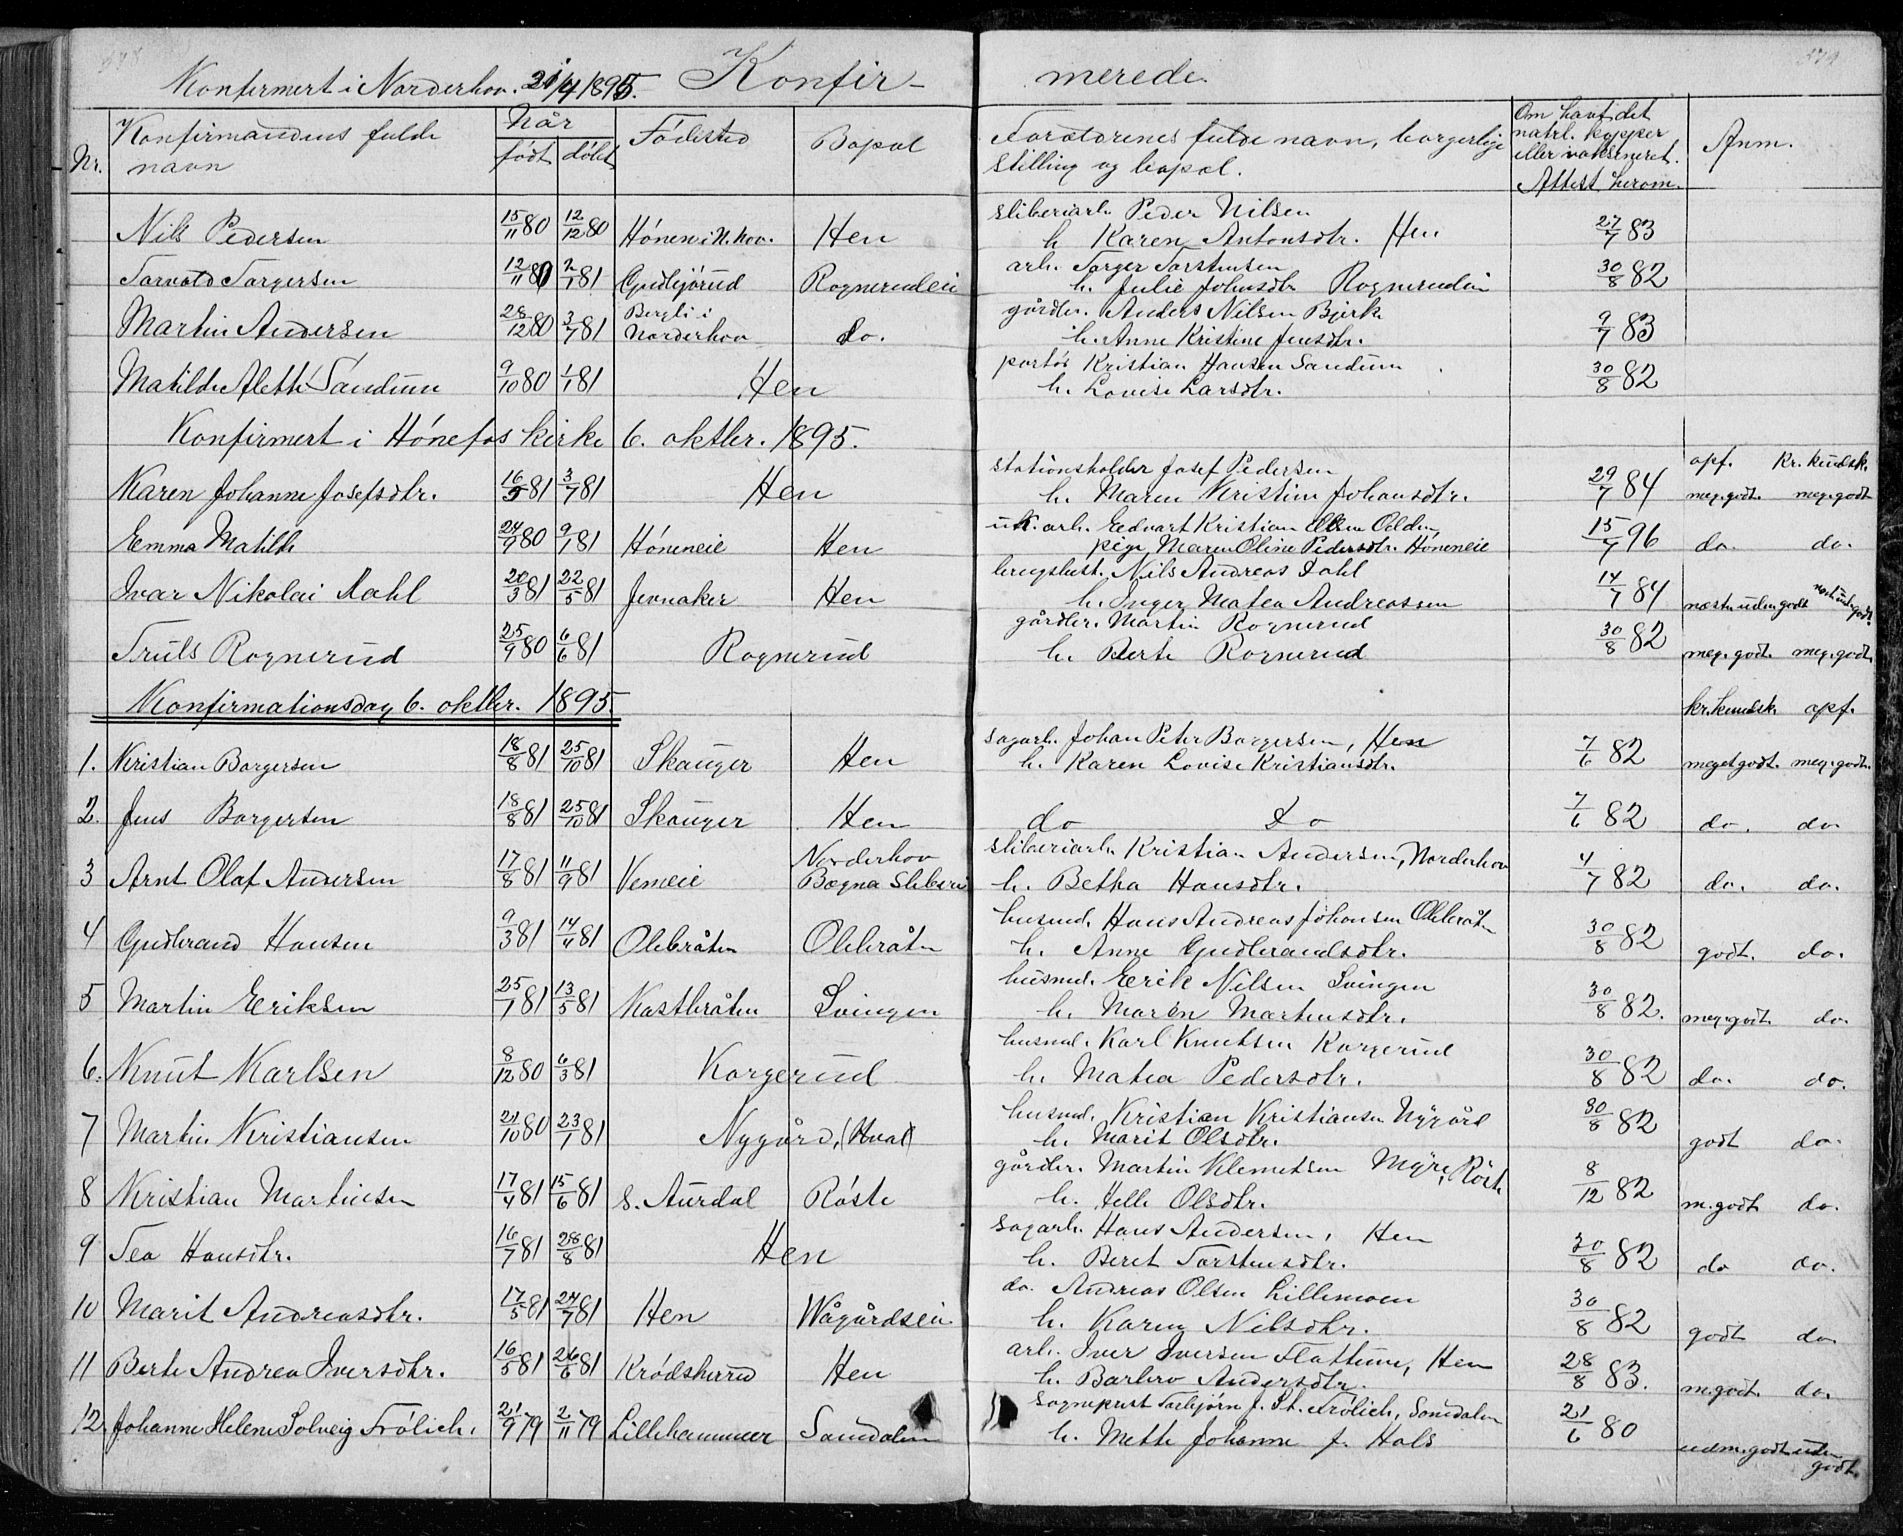 Konfirmert i Norderhov 21/4 1895. Konfir- merede
Nr. Konfirmandens fulde navn Når født døbt Fødested Bopæl Forældrenes fulde navn, borgerlige stilling og bopæl. Om havt det natrl. kopper eller vaksineret. Attest herom. Anm.
Nils Pedersen 15/11 80 12/12 80 Hönen i N.hov. Hen sliberiarb. Peder Nilsen 27/7 83
h. Karen Antonsdtr. Hen
Torvald Torgersen 12/11 80 2/1 81 Gudbjörud Rognerudeie arb. Torger Torstensen 30/8 82
h. Julie Johnsdtr Rognerudeie
Martin Andersen 28/12 80 3/7 81 Bergli i Norderhov do. gårdbr. Anders Nilsen Bjerke 9/7 83
h. Anne Kristine Jensdtr.
Matilde Alette Sandum 9/10 80 1/1 81 Hen portör Kristian Hansen Sandum 30/8 82
h. Lovise Larsdtr.
Konfirmert i Hönefos kirke 6. oktbr. 1895.
opf. kr. kundsk.
Karen Johanne Josefsdtr. 16/5 81 3/7 81 Hen stationsholder Josef Pedersen 29/7 84 meg. godt. meg. godt
h. Maren Kristine Johansdtr.
Emma Matilde 24/9 80 9/1 81 Höneneie Hen uk. arb. Edvart Kristian Olsen Odden 15/7 96 do. do.
pige Maren Oline Pedersdtr. Höneneie
Ivar Nikolai Dahl 20/3 81 22/5 81 Jevnaker Hen brugsbest. Nils Andreas Dahl 14/7 84 næsten uden godt næst uden godt
h. Inger Matea Andreassen
Truls Rognerud 25/9 80 6/6 81 Rognerud gårdbr. Martin Rognerud 30/8 82 meg. godt. meg. godt.
h. Berte Rognerud
Konfirmationsdag 6. oktbr. 1895. kr. kundsk. opf.
1. Kristian Borgersen 18/8 81 25/10 81 Skauger Hen sagarb. Johan Peter Borgersen, Hen 7/6 82 meget godt. meg. godt.
h. Karen Lovise Kristiansdtr.
2. Jens Borgersen 18/8 81 25/10 81 Skauger Hen do do 7/6 82 do. do
3 Arnt Olaf Andersen 17/8 81 11/9 81 Vemeie Norderhov Bægna Sliberi sliberiarb. Kristian Andersen, Norderhov 4/7 82 do. do.
h. Betha Hansdtr.
4 Gudbrand Hansen 9/3 81 14/4 81 Olebråten Olebråten husmd. Hans Andreas Johansen Olebråten 30/8 82 godt. do.
h. Anne Gudbrandsdtr.
5 Martin Eriksen 25/7 81 13/5 81 Kastbråten Svingen husmd. Erik Nilsen Svingen 30/8 82. meg. godt. do.
h. Maren Martensdtr.
6. Knut Karlsen 8/12 80 6/3 81 Korgerud husmd. Karl Knutsen Korgerud 30/8 82 do. do.
h. Matea Pedersdtr.
7 Martin Kristiansen 21/10 80 23/1 81 Nygård, (Hval) husmd. Kristian Kristiansen Nygård 30/8 82 godt do.
h. Marit Olsdtr.
8 Kristian Martinsen 17/4 81 15/6 81 s. Aurdal Röste gårdbr. Martin Klemetsen Myre, Röste 8/12 82 m. godt do.
h. Helle Olsdtr.
9 Tea Hansdtr. 16/7 81 28/8 81 Hen sagarb. Hans Andersen, Hen 30/8 82 do do.
h. Beret Torstensdtr.
10 Marit Andreasdtr. 17/5 81 24/7 81 Hen Wågårdseie do. Andreas Olsen Lillemoen 30/8 82 godt do.
h. Karen Nilsdtr.
11 Berte Andrea Iversdtr. 16/5 81 26/6 81 Krödsherred Hen arb. Iver Iversen Flattum, Hen 28/8 83. m. godt. do.
h. Barbro Andersdtr.
12. Johanne Helene Solveig Frölich. 21/9 79 2/11 79 Lillehammer Somdalen sogneprest Torbjörn J. St. Frölich, Somdalen 21/6 80 udm. godt udm. godt.
h. Mette Johanne f. Hals